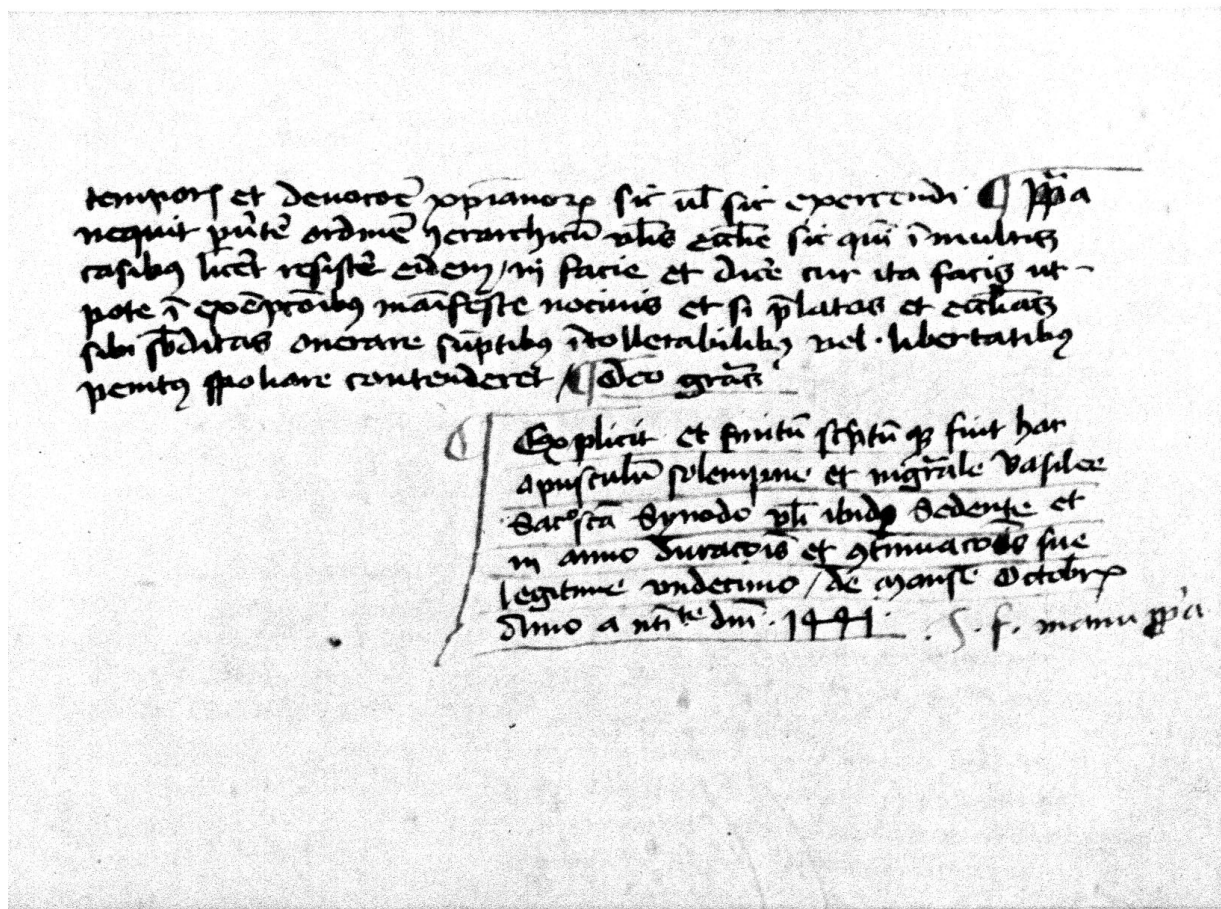 tempor et devocoē xp̄ianorꝝ sic ul̄ sic exercendi ¶ pp̄a
nequit ordinē ierarchicū ecclīe sic qn̄ ī multis
casibꝰ licet resistē eidem / in facie et dice cur ita facis ut-
pote ī exēpcōibꝰ manifeste nocivis et si p̄latos et ecclīas
sibi sb̄ditas onerare sūptibꝰ ītollerabilibꝰ vel · libertatibꝰ
penitꝰ spoliare contenderet / ¶ Deo grās
¶ Explicit et finitū sc̄ptū qꝫ fuit hoc
opusculū solempne et Basilee
Sac̊scā Synodo ibidē Sedente et
in anno duracōis et ꝯtinuacōis sue
legitime undecimo / de mense Octobrꝭ
Anno a nāti^te dn̄i · 1441 · . S. f. manu pp̄a